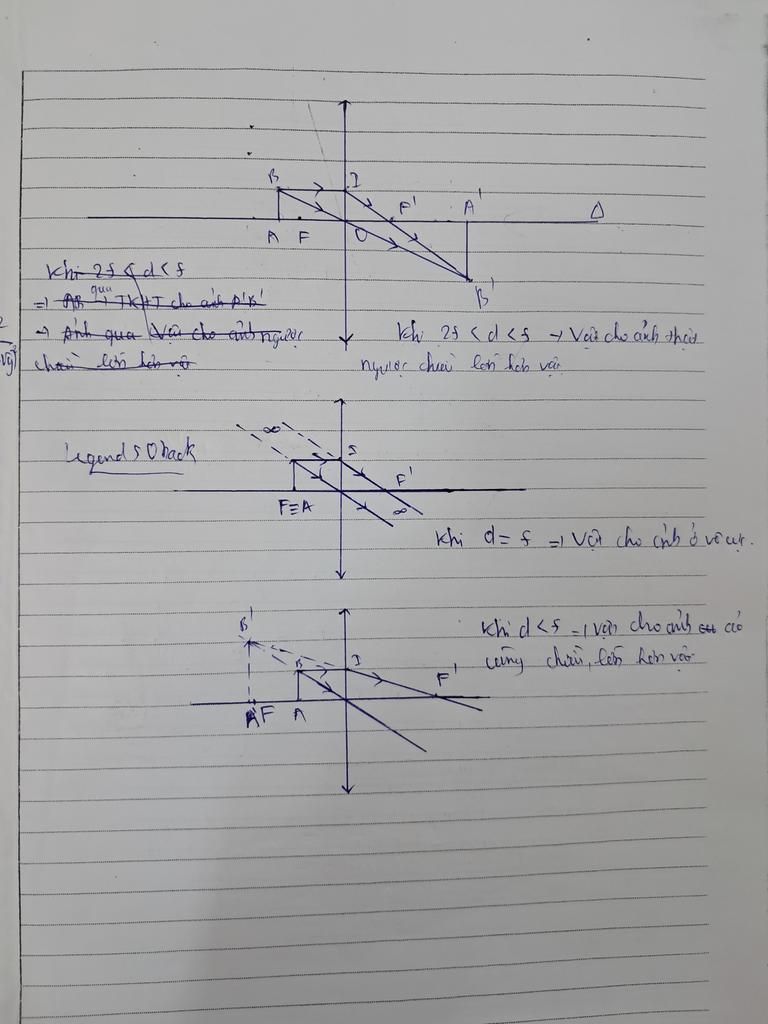 B I F' A' Δ
A F O
B'
Khi 2f < d < f
=) AB qua → TKHT cho ảnh A'B'
→ Ảnh qua Vật cho ảnh ngược
chiều lớn hơn vật
Khi 2f < d < f → Vật cho ảnh thật
ngược chiều lớn hơn vật
∞
F'
F≡A
∞
Khi d = f =) Vật cho ảnh ở vô cực.
B'
B I
F'
A' F A
Khi d < f =) vật cho ảnh ảo
cùng chiều, lớn hơn vật